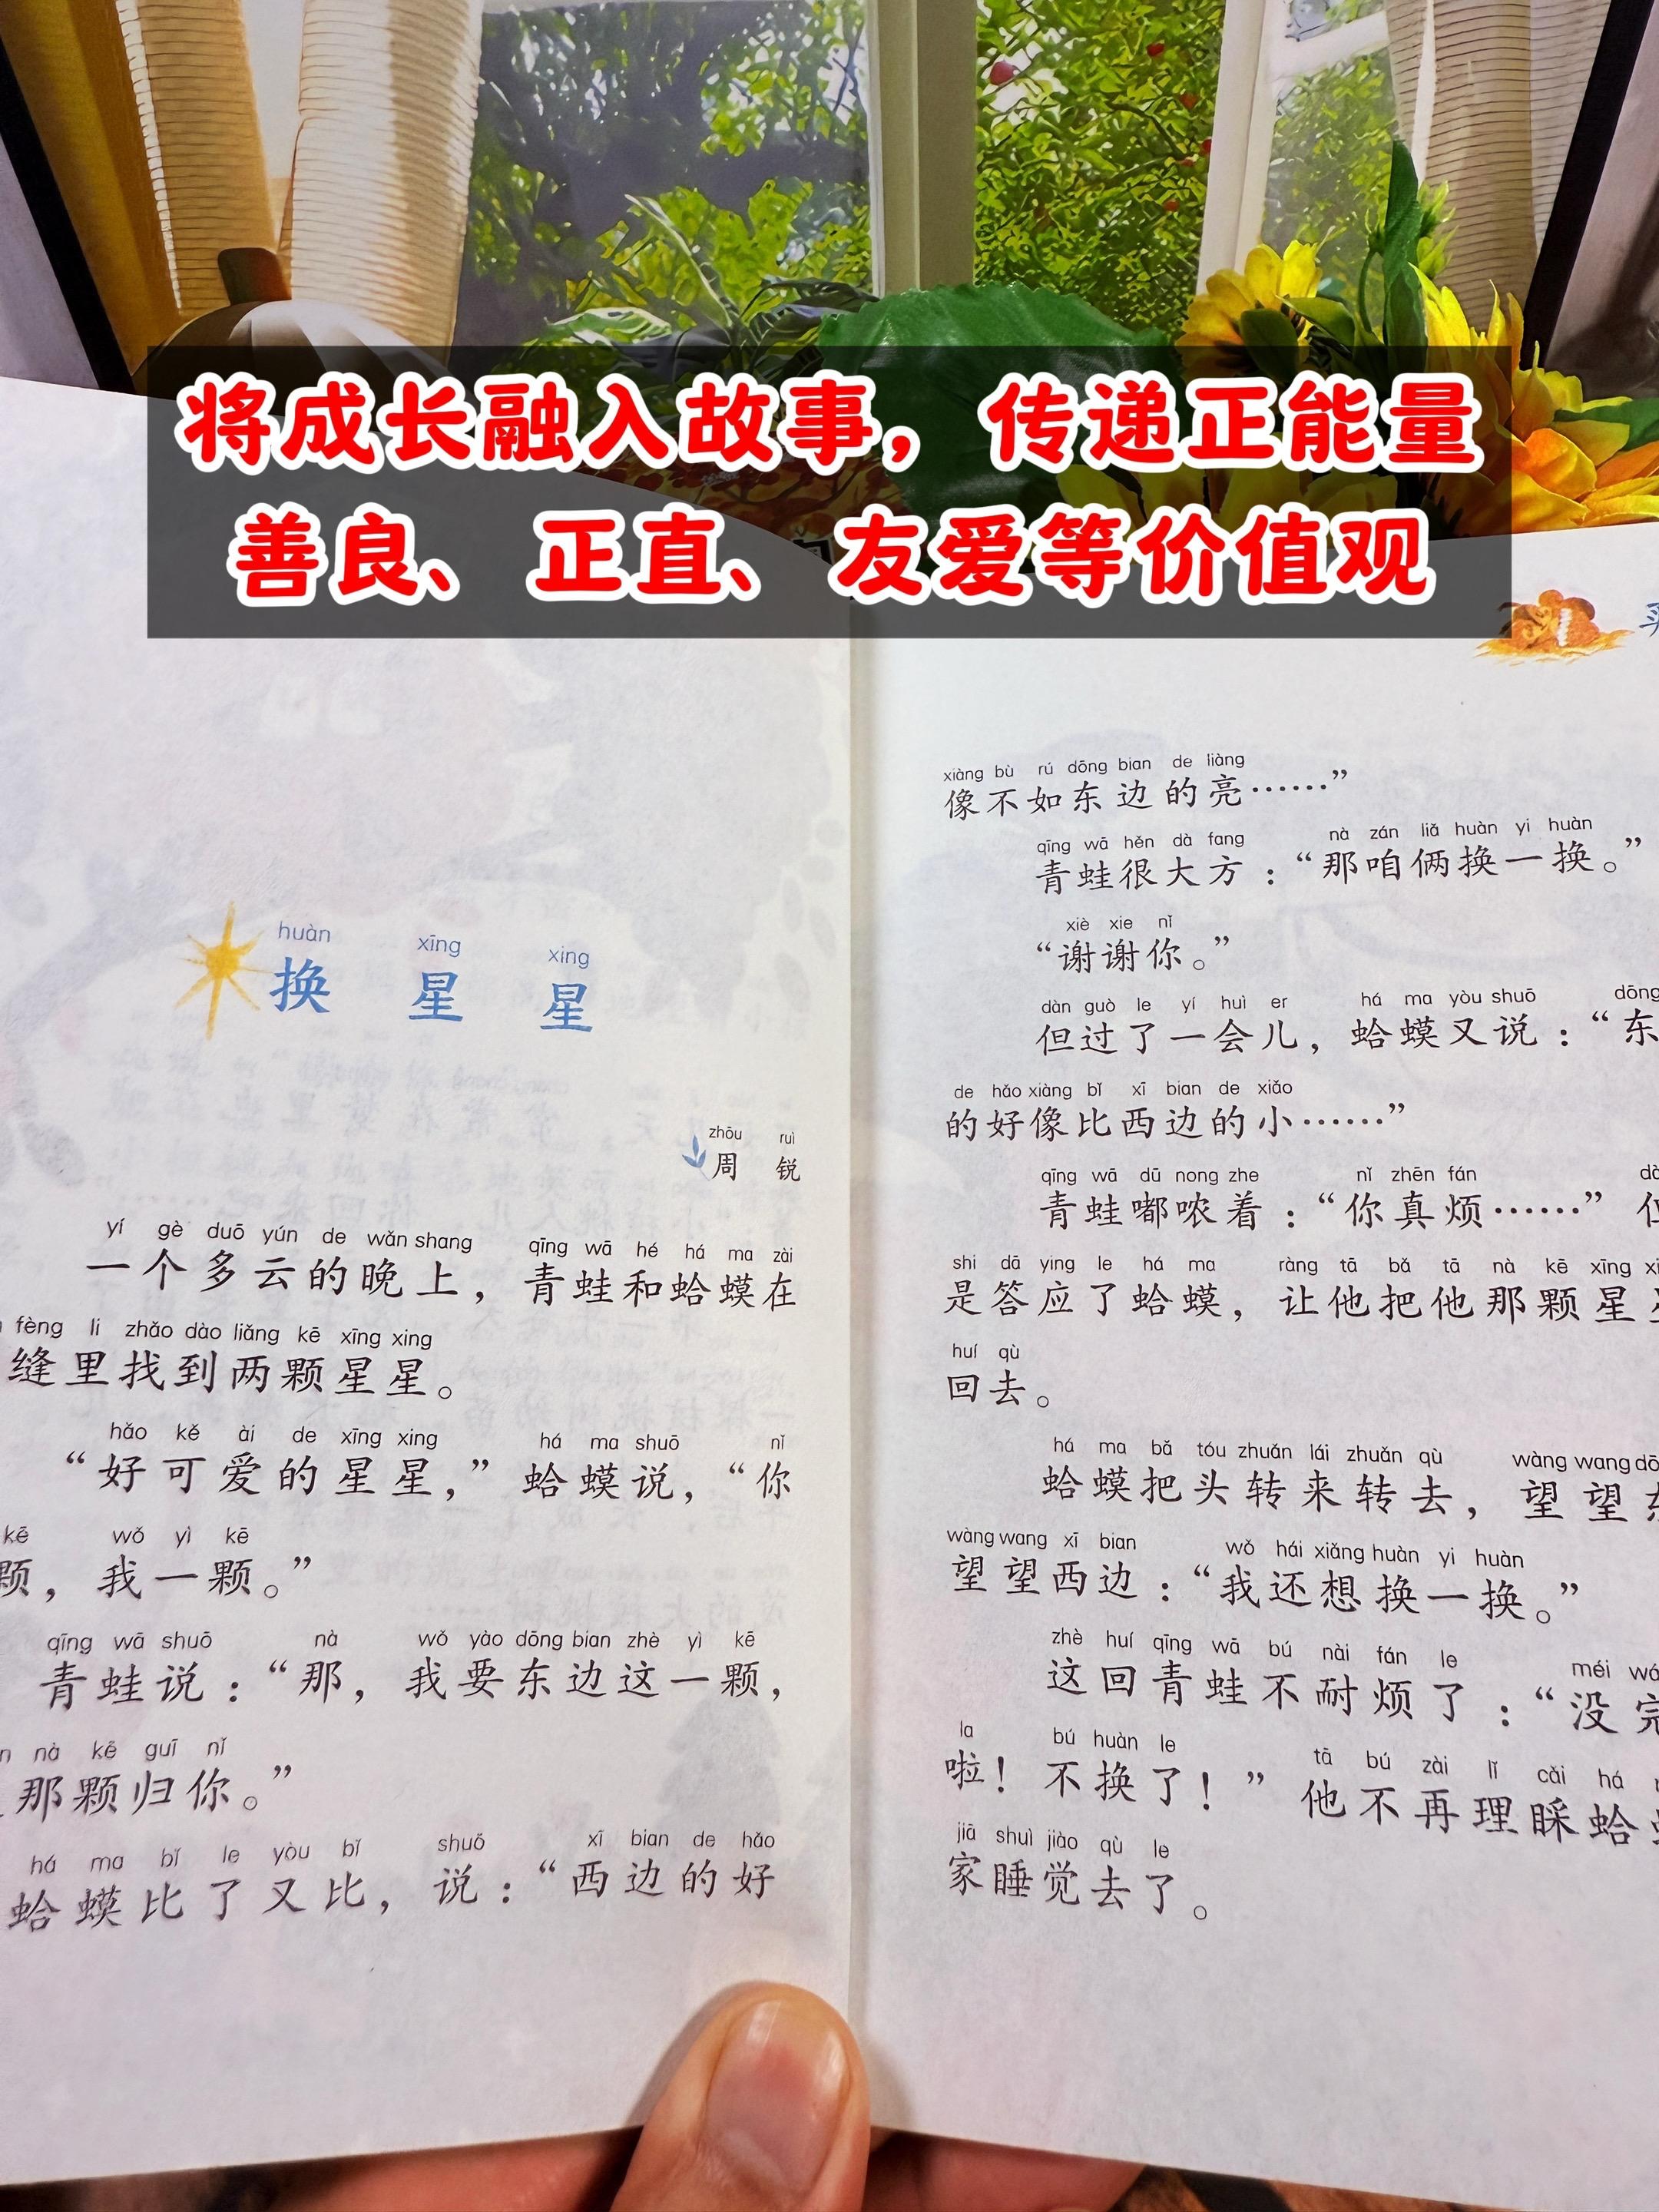 将成长融入故事，传递正能量
善良、正直、友爱等价值观
huàn xīng xing
换星星
zhōu ruì
周锐
yí gè duō yún de wǎn shang qīng wā hé há ma zài
一个多云的晚上，青蛙和蛤蟆在
fèng li zhǎo dào liǎng kē xīng xing
缝里找到两颗星星。
hǎo kě ài de xīng xing há ma shuō nǐ
“好可爱的星星，”蛤蟆说，“你
kē wǒ yì kē
颗，我一颗。”
qīng wā shuō nà wǒ yào dōng bian zhè yì kē
青蛙说：“那，我要东边这一颗，
nà kē guī nǐ
那颗归你。”
há ma bǐ le yòu bǐ shuō xī bian de hǎo
蛤蟆比了又比，说：“西边的好
xiàng bù rú dōng bian de liàng
像不如东边的亮……”
qīng wā hěn dà fang nà zán liǎ huàn yi huàn
青蛙很大方：“那咱俩换一换。”
xiè xie nǐ
“谢谢你。”
dàn guò le yí huì er há ma yòu shuō dōng
但过了一会儿，蛤蟆又说：“东
de hǎo xiàng bǐ xī bian de xiǎo
的好像比西边的小……”
qīng wā dū nong zhe nǐ zhēn fán
青蛙嘟哝着：“你真烦……”
shi dā ying le há ma ràng tā bǎ tā nà kē xīng
是答应了蛤蟆，让他把他那颗星
huí qù
回去。
há ma bǎ tóu zhuǎn lái zhuǎn qù wàng wang
蛤蟆把头转来转去，望望东
wàng wang xī bian wǒ hái xiǎng huàn yi huàn
望望西边：“我还想换一换。”
zhè huí qīng wā bú nài fán le méi
这回青蛙不耐烦了：“没完
la bú huàn le tā bú zài lǐ cǎi há
啦！不换了！”他不再理睬蛤
jiā shuì jiào qù le
家睡觉去了。